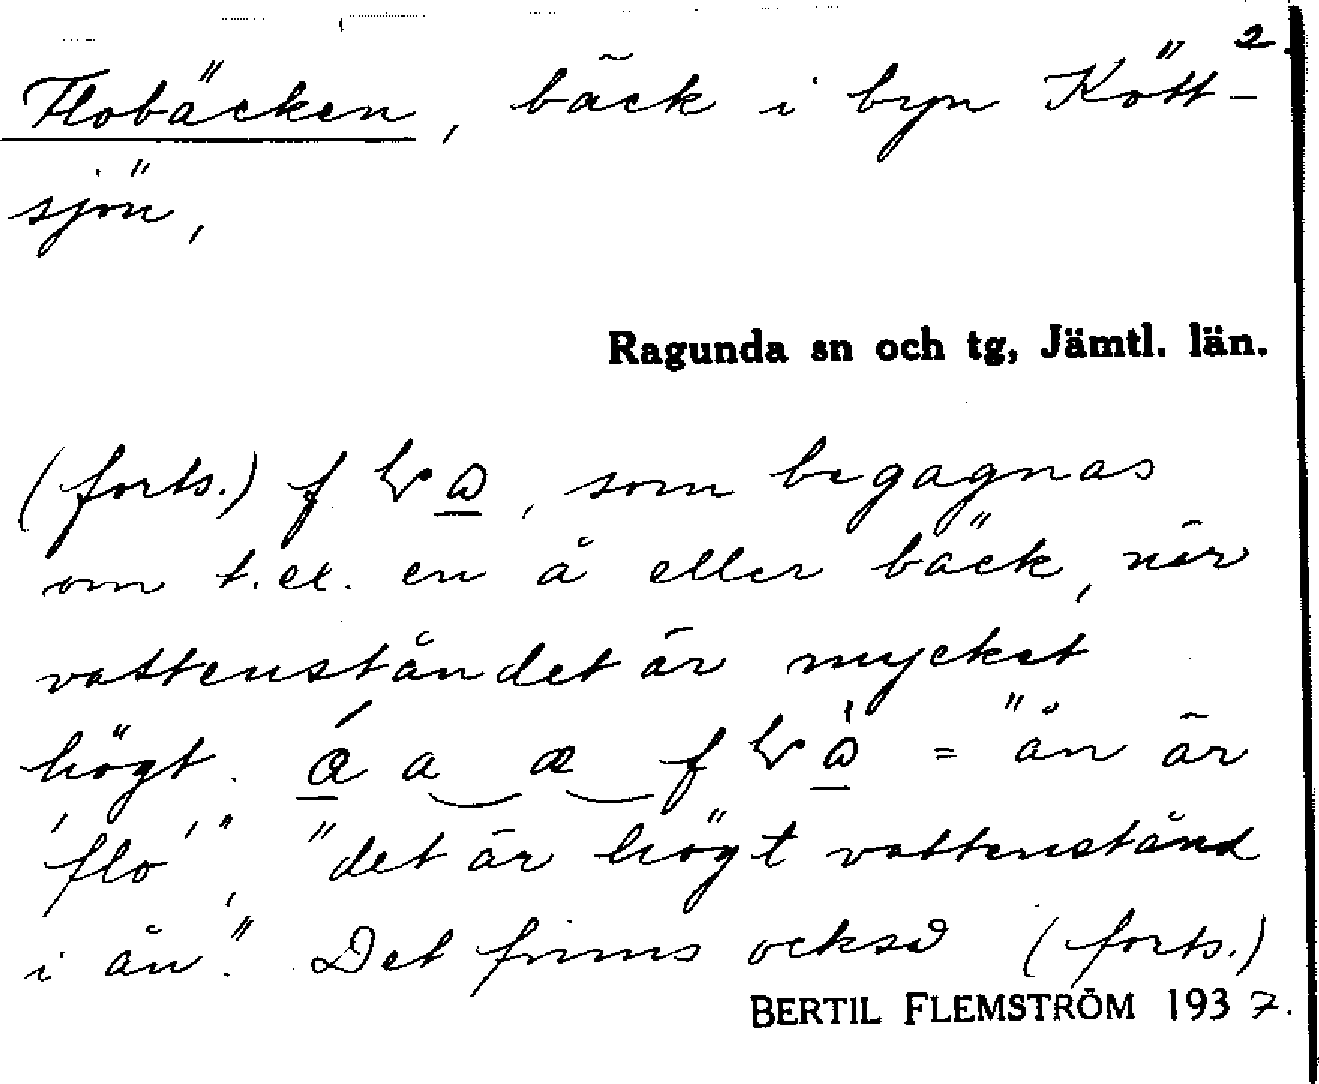 2.
Flobäcken, bäck i byn Kött-
sjön,
Ragunda sn och tg, Jämtl. län.
(forts.) , som begagnas
om t.ex. en å eller bäck, när
vattenståndet är mycket
högt. = "ån är
'flo'", "det är högt vattenstånd
i ån". Det finns också (forts.)
BERTIL FLEMSTRÖM 1937.